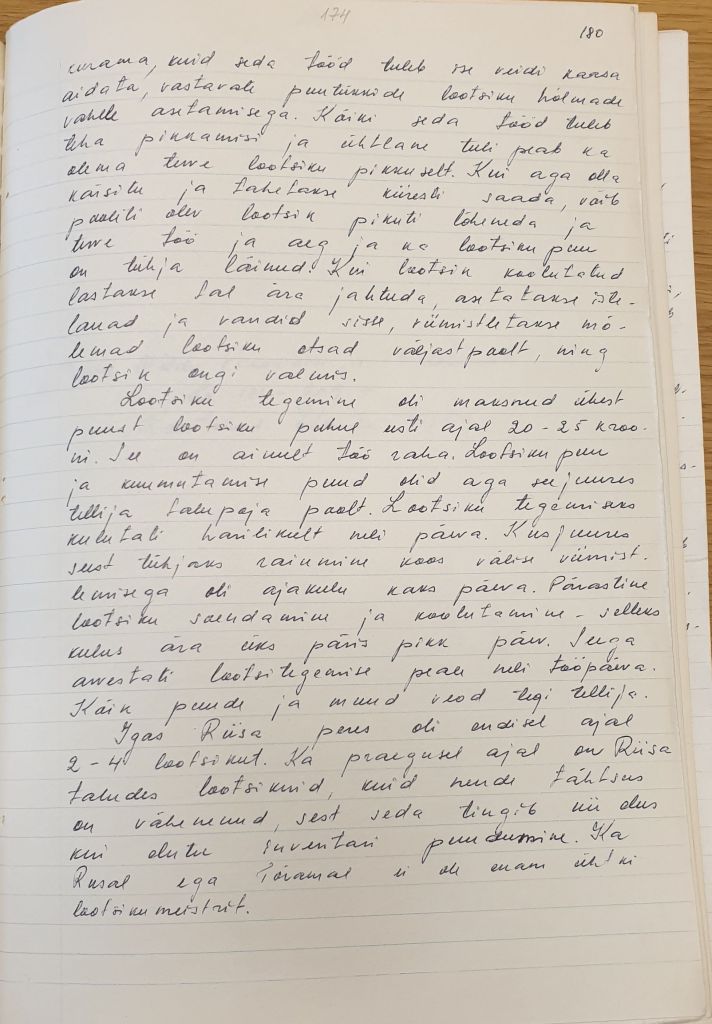 174
180
kurama, kuid seda tööd tuleb ise veidi kaasa
aidata, vastavate puutükkide lootsiku hõlmade
vahele asetamisega. Kõiki seda tööd tuleb
teha pikkamisi ja ühtlane tuli peab ka
olema terve lootsiku pikkuselt. Kui aga olla
kärsitu ja tahetakse kiiresti saada, võib
pooliti olev lootsik pikuti lõheneda ja
terve töö ja aeg ja ka lootsiku puu
on tühja läinud. Kui lootsik koolutatud
lastakse tal ära jahtuda, asetatakse iste-
lauad ja vandid sisse, viimistletakse mõ-
lemad lootsiku otsad väljastpoolt, ning
lootsik ongi valmis.
Lootsiku tegemine oli maksnud ühest
puust lootsiku puhul eesti ajal 20-25 kroo-
ni. See on ainult töö raha. Lootsiku puu
ja kuumutamise puud olid aga seejuures
tellija talupoja poolt. Lootsiku tegemiseks
kulutati harilikult neli päeva. Kusjuures
seest tühjaks raiumine koos välise viimist-
lemisega oli ajakulu kaks päeva. Pärastine
lootsiku soendamine ja koolutamine - selleks
kulus ära üks päris pikk päev. Seega
arvestati lootsitegemise peale neli tööpäeva.
Kõik puude ja muud veod tegi tellija.
Igas Riisa peres oli endisel ajal
2-4 lootsikut. Ka praegusel ajal on Riisa
taludes lootsikuid, kuid nende tähtsus
on vähenenud, sest seda tingib nii elus
kui elutu inventari puudumine. Ka
Riisal ega Tõramal ei ole enam ühtki
lootsikumeistrit.